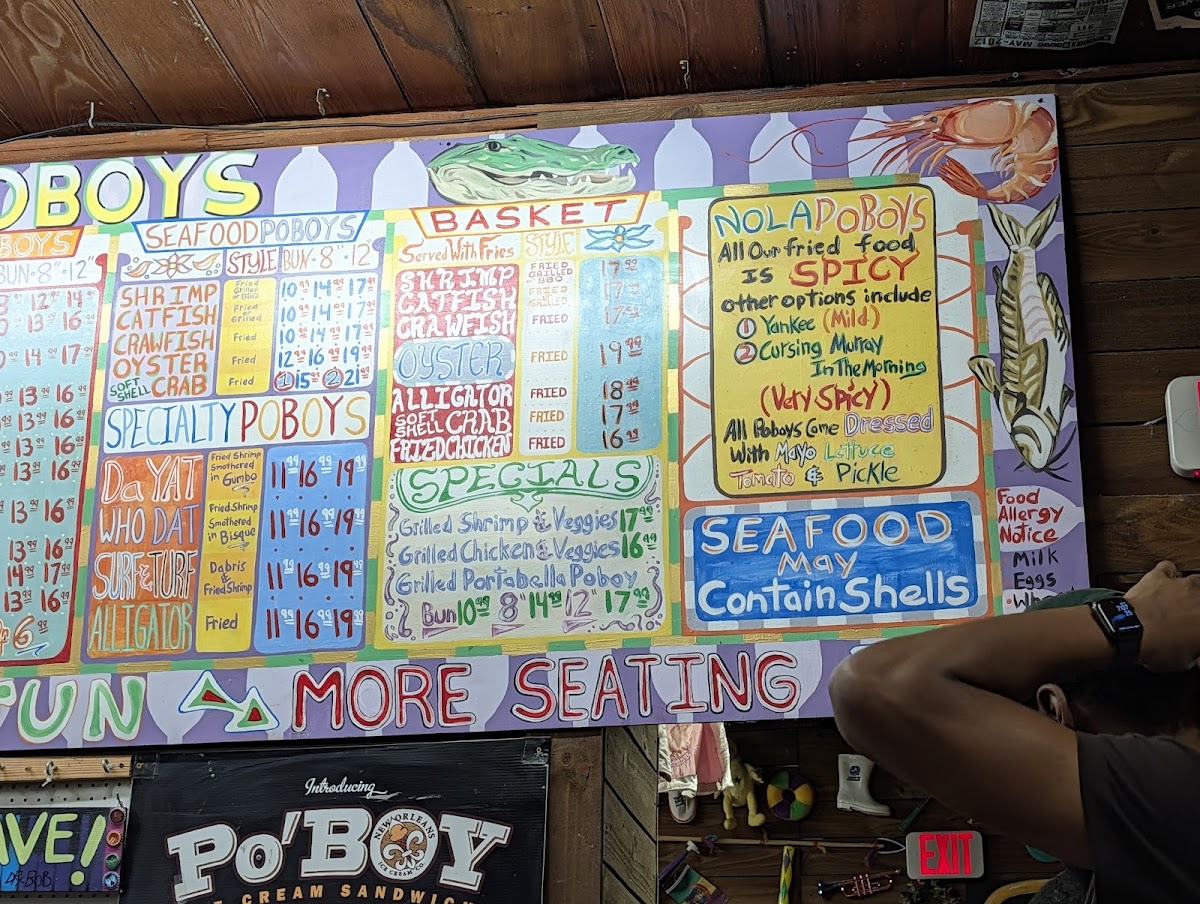 OBOYS
BOYS
BUN·8"·12"
8⁹⁹ 12⁹⁹ 14⁹⁹
13⁹⁹ 16⁹⁹
14⁹⁹ 17⁹⁹
13⁹⁹ 16⁹⁹
13⁹⁹ 16⁹⁹
13⁹⁹ 16⁹⁹
13⁹⁹ 16⁹⁹
13⁹⁹ 16⁹⁹
13⁹⁹ 16⁹⁹
14⁹⁹ 17⁹⁹
13⁹⁹ 16⁹⁹
6⁹⁹
SEAFOOD POBOYS
STYLE BUN·8"·12"
SHRIMP Fried Grilled or BBQ 10⁹⁹ 14⁹⁹ 17⁹⁹
CATFISH Fried or Grilled 10⁹⁹ 14⁹⁹ 17⁹⁹
CRAWFISH Fried 10⁹⁹ 14⁹⁹ 17⁹⁹
OYSTER Fried 12⁹⁹ 16⁹⁹ 19⁹⁹
SOFT SHELL CRAB Fried ① 15⁹⁹ ② 21⁹⁹
SPECIALTY POBOYS
Da YAT Fried Shrimp Smothered in Gumbo 11⁹⁹ 16⁹⁹ 19⁹⁹
WHO DAT Fried Shrimp Smothered in Bisque 11⁹⁹ 16⁹⁹ 19⁹⁹
SURF & TURF Dabris & Fried Shrimp 11⁹⁹ 16⁹⁹ 19⁹⁹
ALLIGATOR Fried 11⁹⁹ 16⁹⁹ 19⁹⁹
BASKET
Served With Fries STYLE
SHRIMP FRIED GRILLED BBQ 17⁹⁹
CATFISH FRIED GRILLED 17⁹⁹
CRAWFISH FRIED 17⁹⁹
OYSTER FRIED 19⁹⁹
ALLIGATOR FRIED 18⁹⁹
SOFT SHELL CRAB FRIED 17⁹⁹
FRIED CHICKEN FRIED 16⁹⁹
SPECIALS
Grilled Shrimp & Veggies 17⁹⁹
Grilled Chicken & Veggies 16⁹⁹
Grilled Portabella Poboy
Bun 10⁹⁹ 8" 14⁹⁹ 12" 17⁹⁹
NOLA POBOYS
All Our fried food
IS SPICY
other options include
① Yankee (Mild)
② Cursing Murray
In The Morning
(Very Spicy)
All Poboys Come Dressed
With Mayo Lettuce
Tomato & Pickle
SEAFOOD
May
Contain Shells
Food
Allergy
Notice
Milk
Eggs
FUN MORE SEATING
AVE!
BOB
Introducing
Po'BOY
NEW ORLEANS
ICE CREAM CO.
CREAM SANDWIC
EXIT